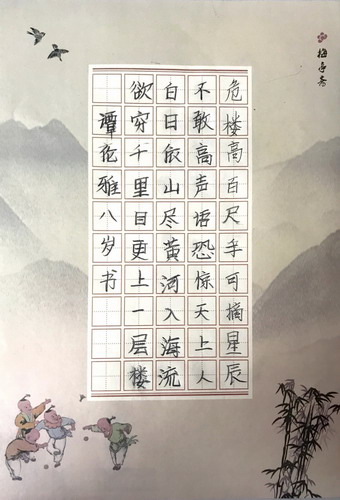 危楼高百尺手可摘星辰
不敢高声语恐惊天上人
白日依山尽黄河入海流
欲穷千里目更上一层楼
潭伦雅八岁书